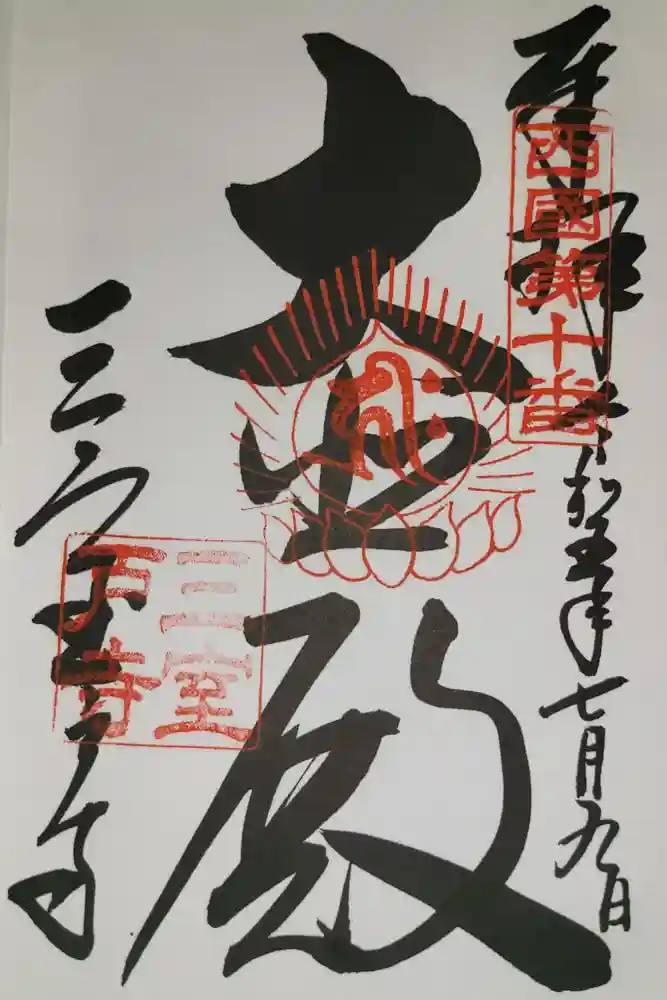 奉拝 令和五年七月九日
西國第十番
大悲殿
三室戸寺
三室
戸寺